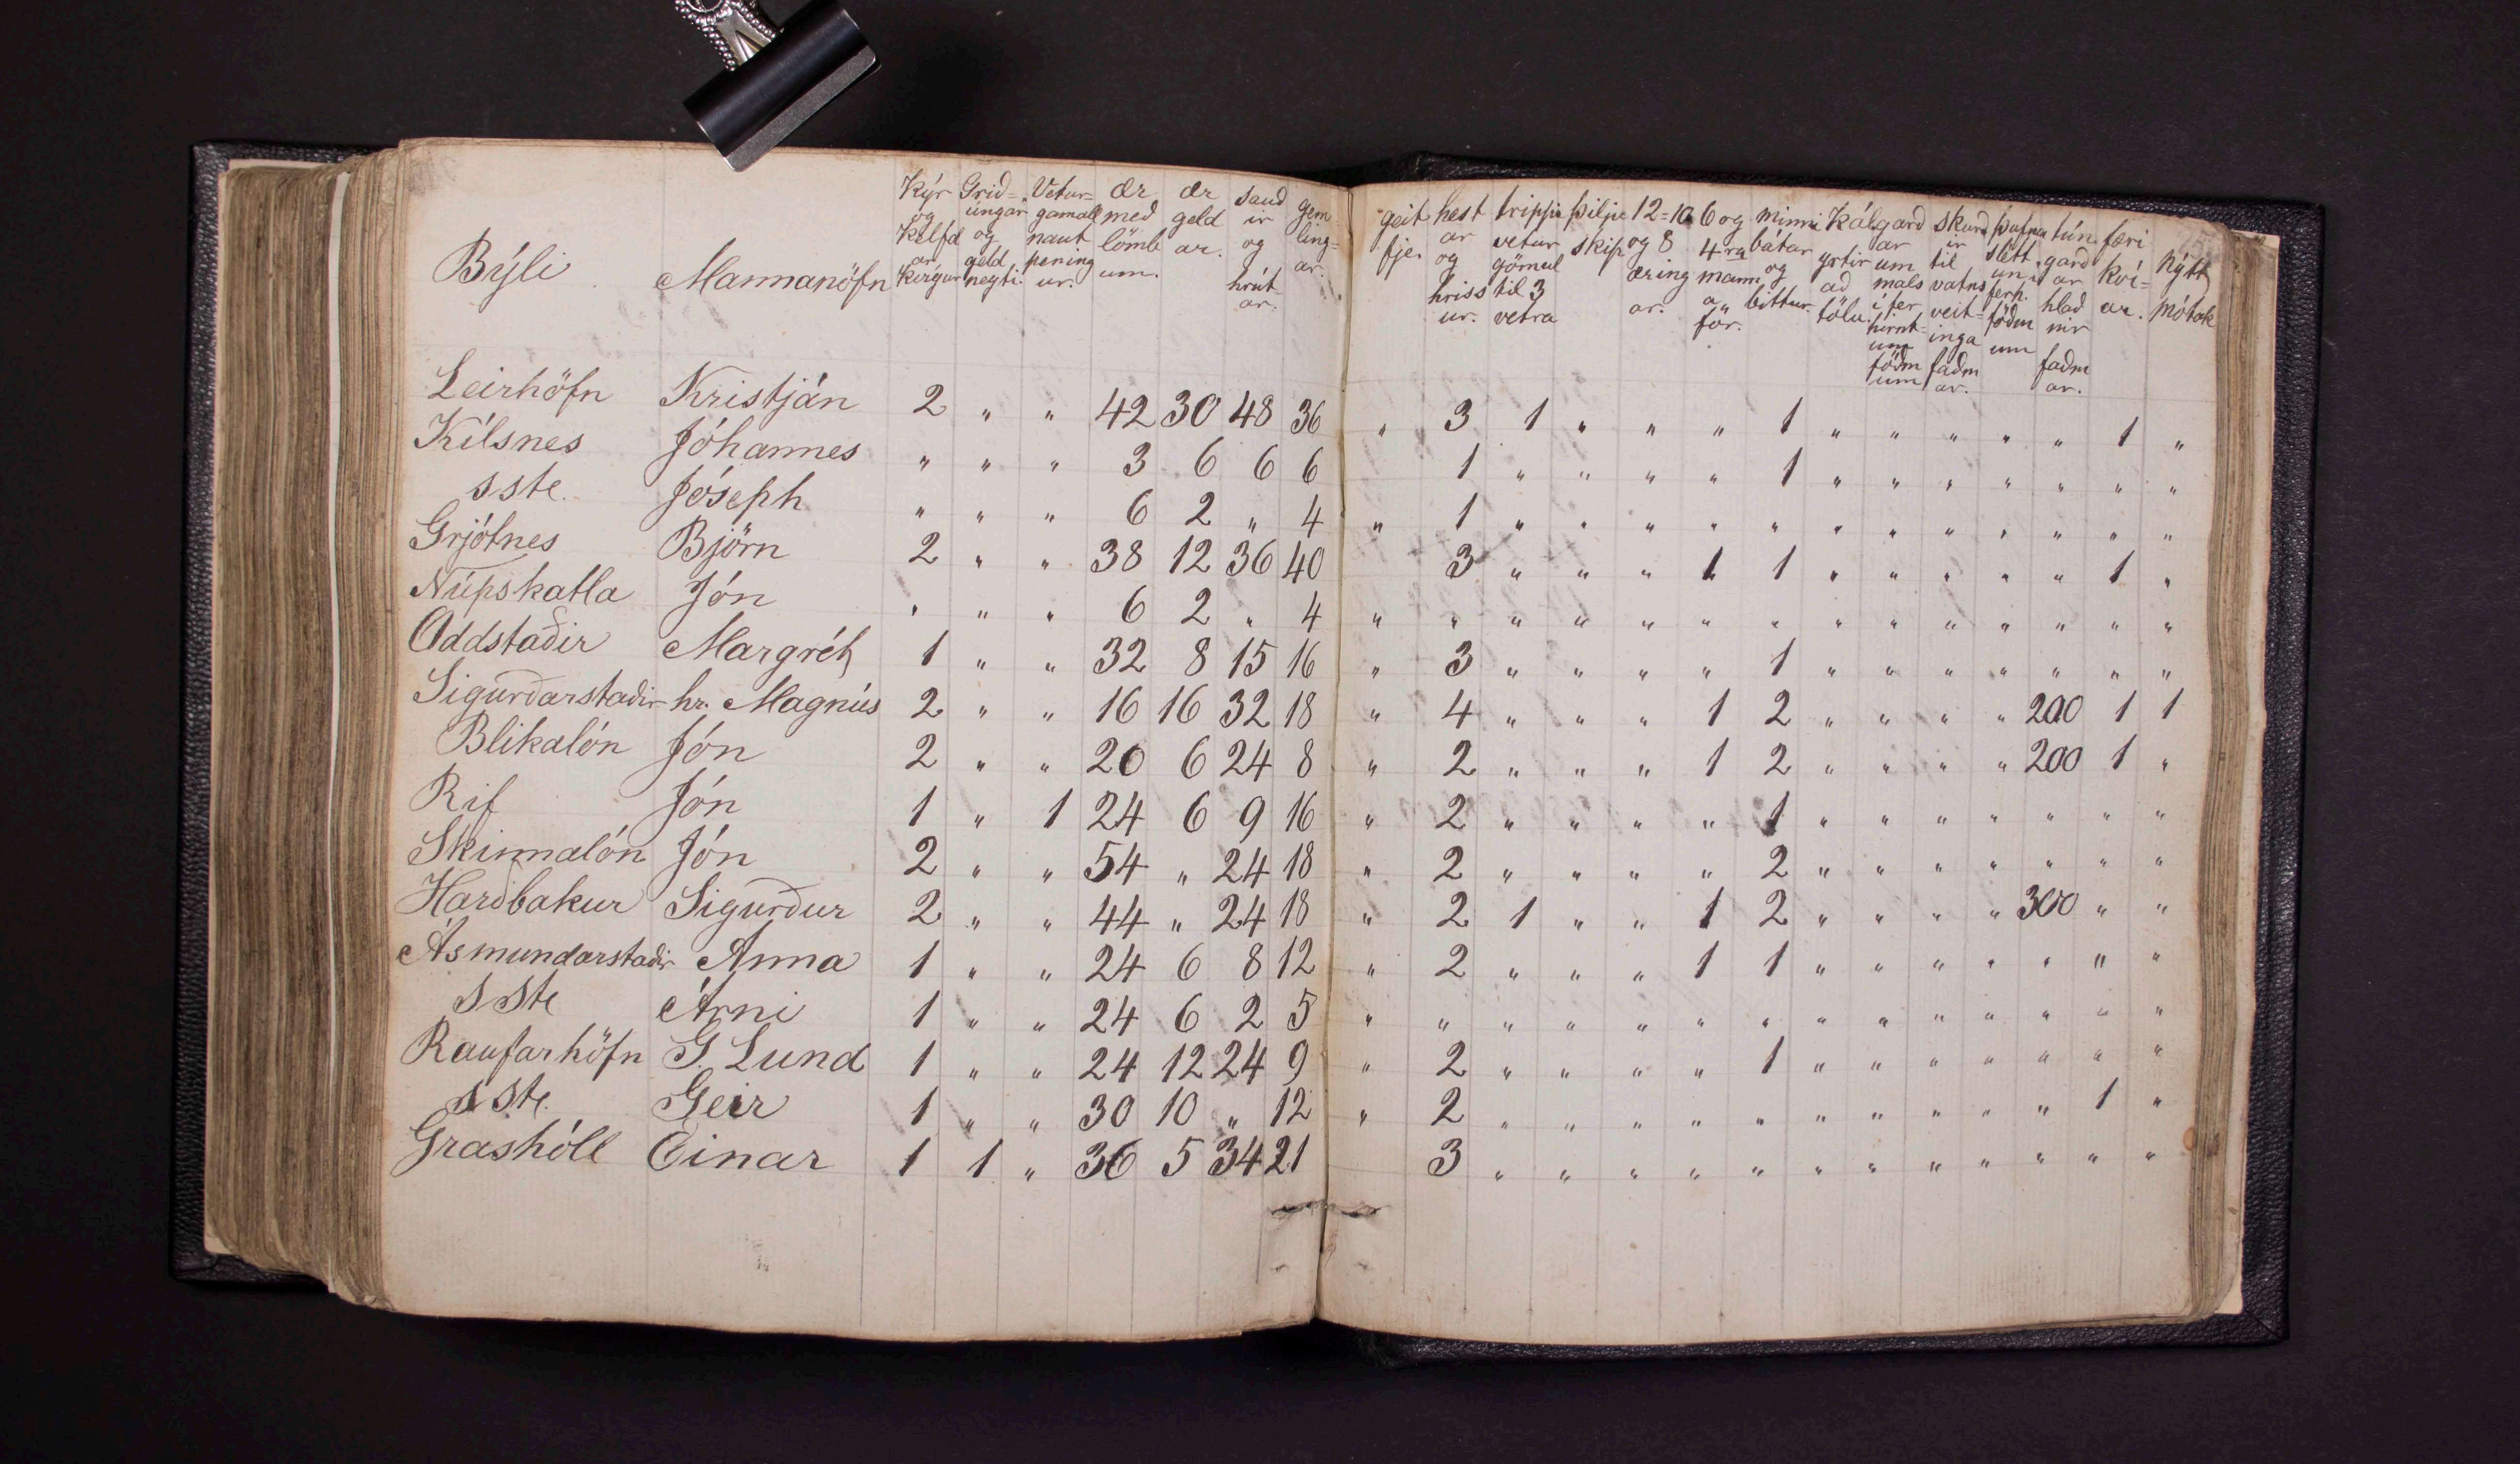 Býli Mannanöfn Kýr og kelfdar kvígur Grið=úngar og geld neyti. Vetur=gamall nautpeningur. ær með lömbum. ær geldar. sauðir og hrútar. gemling=ar. geitfje. hestar og hrissur. trippi vetur gömul til 3 vetra þilju skip 12=10 og 8 æringar. 6 og 4ra manna för. minni bátar og bittur. Kálgarðar yrtir að tölu. skurðir til vatnsveitinga faðmar. þufna slétt. un í ferh. föðmum túngarðar hlaðnir faðmar. færi kví=ar. Nýtt mótak
Leirhöfn Kristján 2 „ „ 42 30 48 36 „ 3 1 „ „ „ 1 „ „ „ „ „ 1 „
Kílsnes Jóhannes „ „ „ 3 6 6 6 1 „ „ „ „ 1 „ „ „ „ „ „ „
sste. Jóseph „ „ „ 6 2 „ 4 „ 1 „ „ „ „ „ „ „ „ „ „ „ „
Grjótnes Björn 2 „ „ 38 12 36 40 3 „ „ „ 1 1 „ „ „ „ „ 1 „
Núpskatla Jón „ „ „ 6 2 „ 4 „ „ „ „ „ „ „ „ „ „ „ „ „ „
Oddstaðir Margrét 1 „ „ 32 8 15 16 „ 3 „ „ „ „ 1 „ „ „ „ „ „ „
Sigurðarstaðir hr. Magnús 2 „ „ 16 16 32 18 „ 4 „ „ „ 1 2 „ „ „ „ 200 1 1
Blikalón Jón 2 „ „ 20 6 24 8 „ 2 „ „ „ 1 2 „ „ „ „ 200 1 „
Rif Jón 1 „ 1 24 6 9 16 „ 2 „ „ „ „ 1 „ „ „ „ „ „ „
Skinnalón Jón 2 „ „ 54 „ 24 18 „ 2 „ „ „ „ 2 „ „ „ „ „ „ „
Harðbakur Sigurður 2 „ „ 44 „ 24 18 „ 2 1 „ „ 1 2 „ „ „ „ 300 „ „
Ásmundarstaðir Anna 1 „ „ 24 6 8 12 „ 2 „ „ „ 1 1 „ „ „ „ „ „ „
sste Árni 1 „ „ 24 6 2 5 „ „ „ „ „ „ „ „ „ „ „ „ „ „
Raufarhöfn G. Lund 1 „ „ 24 12 24 9 „ 2 „ „ „ „ 1 „ „ „ „ „ „ „
sste. Geir 1 „ „ 30 10 „ 12 „ 2 „ „ „ „ „ „ „ „ „ „ 1 „
Grashóll Einar 1 1 „ 36 5 34 21 3 „ „ „ „ „ „ „ „ „ „ „ „